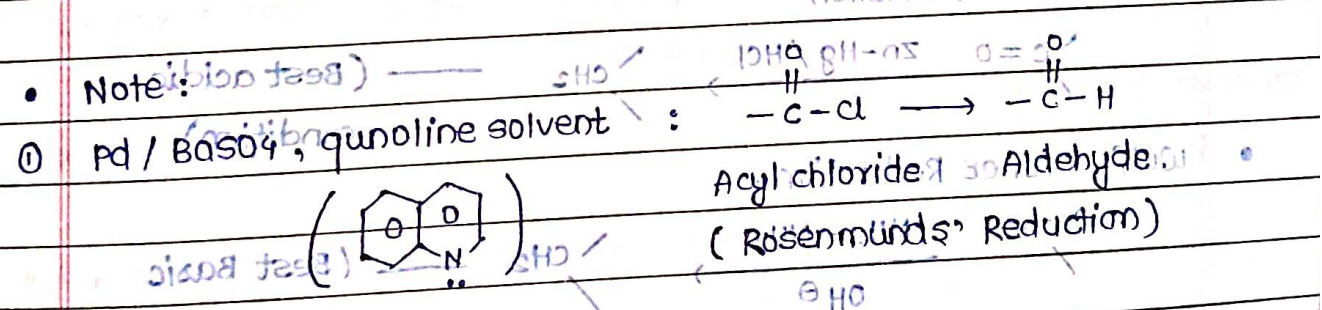 • Note :
① Pd / BaSO4 , qunoline solvent : - C - Cl → - C - H
O O
Acyl chloride Aldehyde.
( Rosenmunds' Reduction )
N